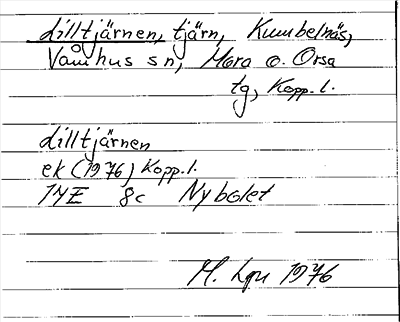 Lilltjärnen, tjärn, Kumbelnäs,
Våmhus sn, Mora o. Orsa
tg, Kopp. l.
Lilltjärnen
ek (1976) Kopp. l.
14E 8c Nybolet
M. 1976